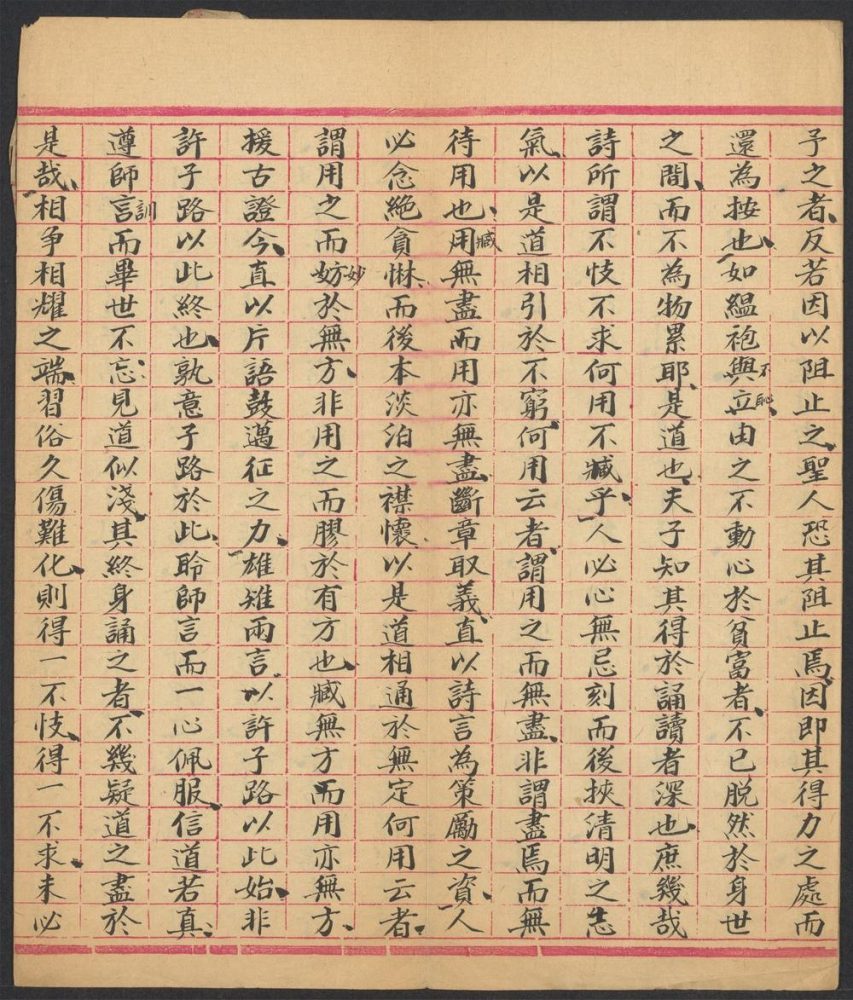 子之者、反若因以阻止之、聖人恐其阻止焉、因即其得力之處而
還為按也、如縕袍與不恥立由之不動心於貧富者、不已脫然於身世
之間、而不為物累耶、是道也、夫子知其得於誦讀者深也、庶幾哉
詩所謂不忮不求何用不臧乎、人必心無忌刻而後挾清明之志
氣、以是道相引於不窮、何用云者、謂用之而無盡、非謂盡焉而無
待用也、用臧無盡而用亦無盡、斷章取義、直以詩言為策勵之資、人
必念絕貪惏、而後本淡泊之襟懷、以是道相通於無定何用云者、
謂用之而妨妙於無方、非用之而膠於有方也、臧無方而用亦無方、
援古證今、直以片語鼓邁征之力、雄雉兩言、以許子路以此始、非
許子路以此終也、孰意子路於此、聆師言而一心佩服、信道若真、
遵師言訓而畢世不忘、見道似淺、其終身誦之者、不幾疑道之盡於
是哉、相爭相耀之端、習俗久傷難化、則得一不忮、得一不求、未必